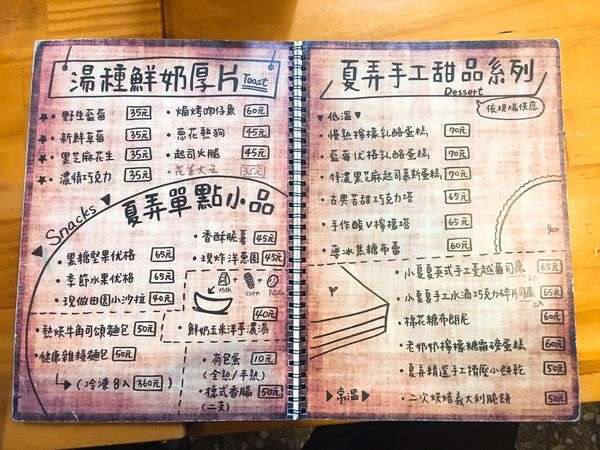 湯種鮮奶厚片 Toast
野生藍莓 35元
新鮮草莓 35元
黑芝麻花生 35元
濃情巧克力 35元
焗烤吻仔魚 60元
蔥花熱狗 45元
起司火腿 45元
35元
Snacks
夏弄單點小品
香酥脆薯 45元
現炸洋蔥圈 45元
黑糖堅果优格 65元
季節水果优格 65元
現做田園小沙拉 40元
milk
corn
Potato
40元
鮮奶玉米洋芋濃湯
熱烘牛角可頌麵包 50元
健康雜糧麵包 50元
(冷凍8入 360元)
荷包蛋 10元
(全熟/半熟)
德式香腸 50元
(二支)
夏弄手工甜品系列
Dessert
依現場供應
低溫
慢熟檸檬乳酪蛋糕 70元
藍莓优格乳酪蛋糕 70元
特濃黑芝麻起司慕斯蛋糕 70元
古典苦甜巧克力塔 65元
手作酸V檸檬塔 65元
薄冰焦糖布蕾 60元
小夏夏英式手工蔓越莓司康 65元
小夏夏手工水滴巧克力碎片司康 65元
棉花糖布朗尼 60元
老奶奶檸檬糖霜磅蛋糕 50元
夏弄精選手工擠壓小餅乾 50元
常溫
二次烘焙義大利脆餅 50元